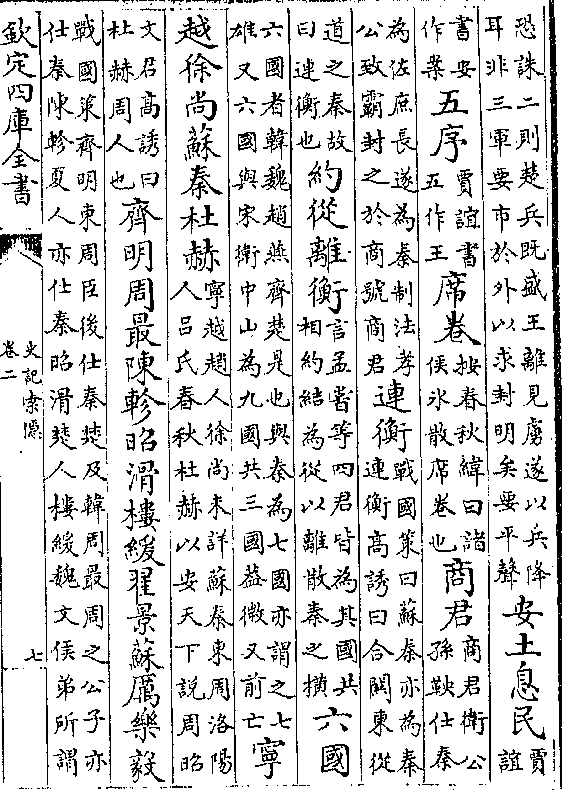 恐誅二則楚兵既盛王離見虜遂以兵降
耳非三軍要市於外以求封明矣要平聲
安土息民
賈
誼
書安
作案
五序
賈誼書
五作王
席卷
按春秋緯曰諸
侯冰散席卷也
商君
商君衛公
孫鞅仕秦
為佐庶長遂為秦制法孝
公致霸封之於商號商君
連衡
戰國策曰蘇秦亦為秦
連衡高誘曰合關東從
道之秦故
曰連衡也
約從離衡
言孟嘗等四君皆為其國共
相約結為從以離散秦之横
六國
六國者韓魏趙燕齊楚是也與秦為七國亦謂之七
雄又六國與宋衛中山為九國共三國葢微又前亡
寧
越徐尚蘇秦杜赫
寧越趙人徐尚未詳蘇秦東周洛陽
人吕氏春秋杜赫以安天下說周昭
文君高誘曰
杜赫周人也
齊明周最陳軫昭滑樓緩翟景蘇厲樂毅
戰國策齊明東周臣後仕秦楚及韓周最周之公子亦
仕秦陳軫夏人亦仕秦昭滑楚人樓緩魏文侯弟所謂
欽定四庫全書
史記索隱
卷二
七